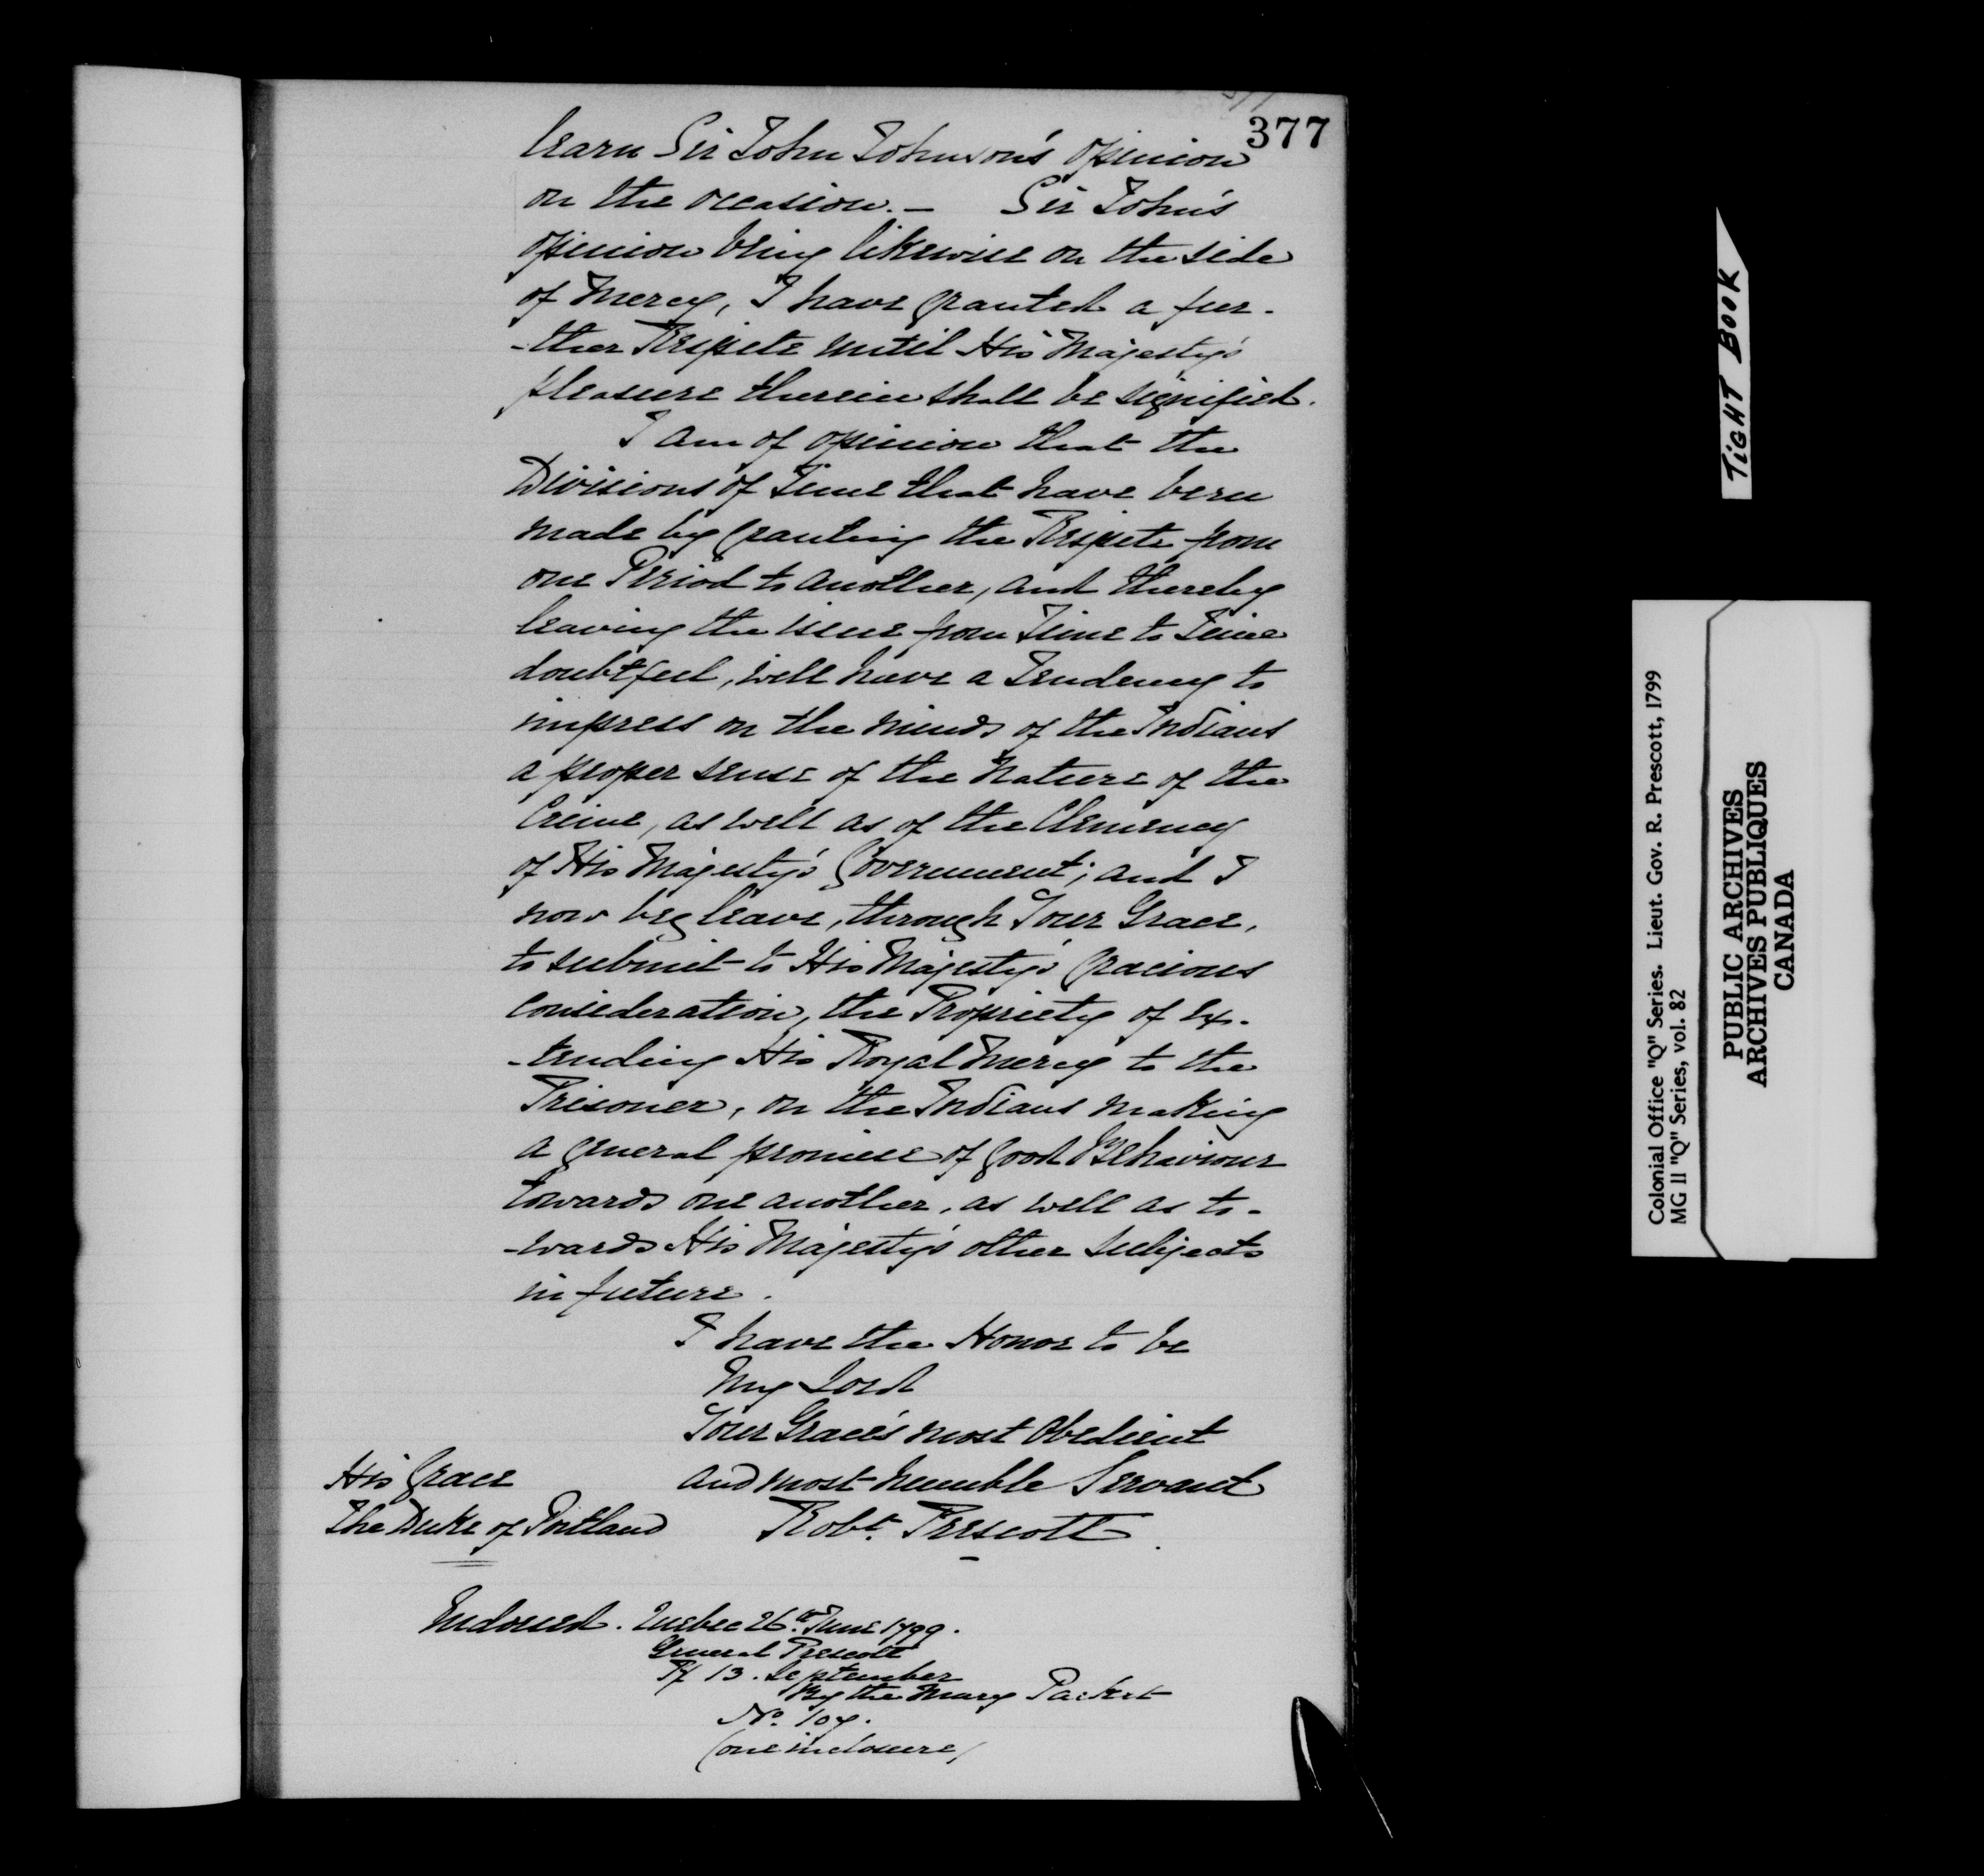 377
learn Sir John Johnson's opinion
on the occasion. – Sir John's
opinion being likewise on the side
of Mercy, I have granted a fur-
-ther Respite until His Majesty's
pleasure therein shall be signified.
I am of opinion that the
Divisions of Time that have been
made by granting the Respite from
one Period to another, and thereby
leaving the issue from Time to Time
doubtful, will have a Tendency to
impress on the minds of the Indians
a proper sense of the Nature of the
Crime, as well as of the Clemency
of His Majesty's Government; and I
now beg leave, through Your Grace,
to submit to His Majesty's gracious
consideration, the Propriety of Ex-
-tending His Royal Mercy to the
Prisoner, on the Indians making
a general promise of good Behaviour
towards one another, as well as to-
-wards His Majesty's other Subjects
in future.
I have the Honor to be
My Lord
Your Grace's most Obedient
and most humble Servant
Robt. Prescott
His Grace
The Duke of Portland
Indorsed. Quebec 26th June 1799.
General Prescott
R/ 13. September
By the Mary Packet
No. 107.
(one inclosure)
TIGHT BOOK
Colonial Office "Q" Series. Lieut. Gov. R. Prescott, 1799
MG 11 "Q" Series, vol. 82
PUBLIC ARCHIVES
ARCHIVES PUBLIQUES
CANADA